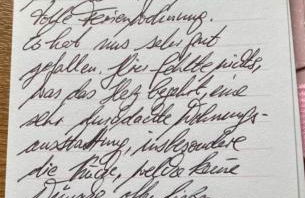 tolle Ferienwohnung.
Es hat uns sehr gut
gefallen. Hier fehlte nichts,
was das Herz begehrt, eine
sehr durchdachte Wohnungs-
ausstattung, insbesondere
die Küche, welche keine
Wünsche offen